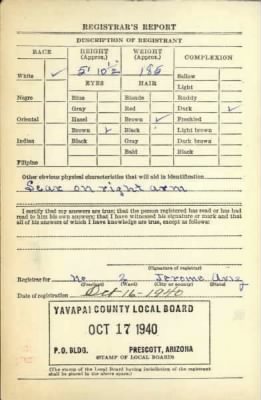 REGISTRAR'S REPORT
DESCRIPTION OF REGISTRANT
RACE HEIGHT (Approx.) WEIGHT (Approx.) COMPLEXION
White ✓ 5' 10½ 186 Sallow
EYES HAIR Light
Negro Blue Blonde Ruddy
Gray Red Dark ✓
Oriental Hazel Brown ✓ Freckled
Brown ✓ Black Light brown
Indian Black Gray Dark brown
Bald Black
Filipino
Other obvious physical characteristics that will aid in identification
Scar on right arm
I certify that my answers are true; that the person registered has read or has had
read to him his own answers; that I have witnessed his signature or mark and that
all of his answers of which I have knowledge are true, except as follows:
(Signature of registrar)
Registrar for No 2 Jerome Ariz
(Precinct) (Ward) (City or county)
Date of registration Oct 16-1940
YAVAPAI COUNTY LOCAL BOARD
OCT 17 1940
P.O. BLDG. PRESCOTT, ARIZONA
STAMP OF LOCAL BOARD
(The stamp of the Local Board having jurisdiction of the registrant
shall be placed in the above space.)